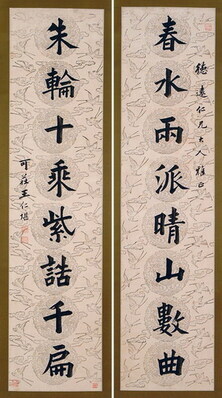 春水兩派晴山數曲
德遠仁兄大人雅正
朱輪十乘紫誥千扁
可莊王仁堪